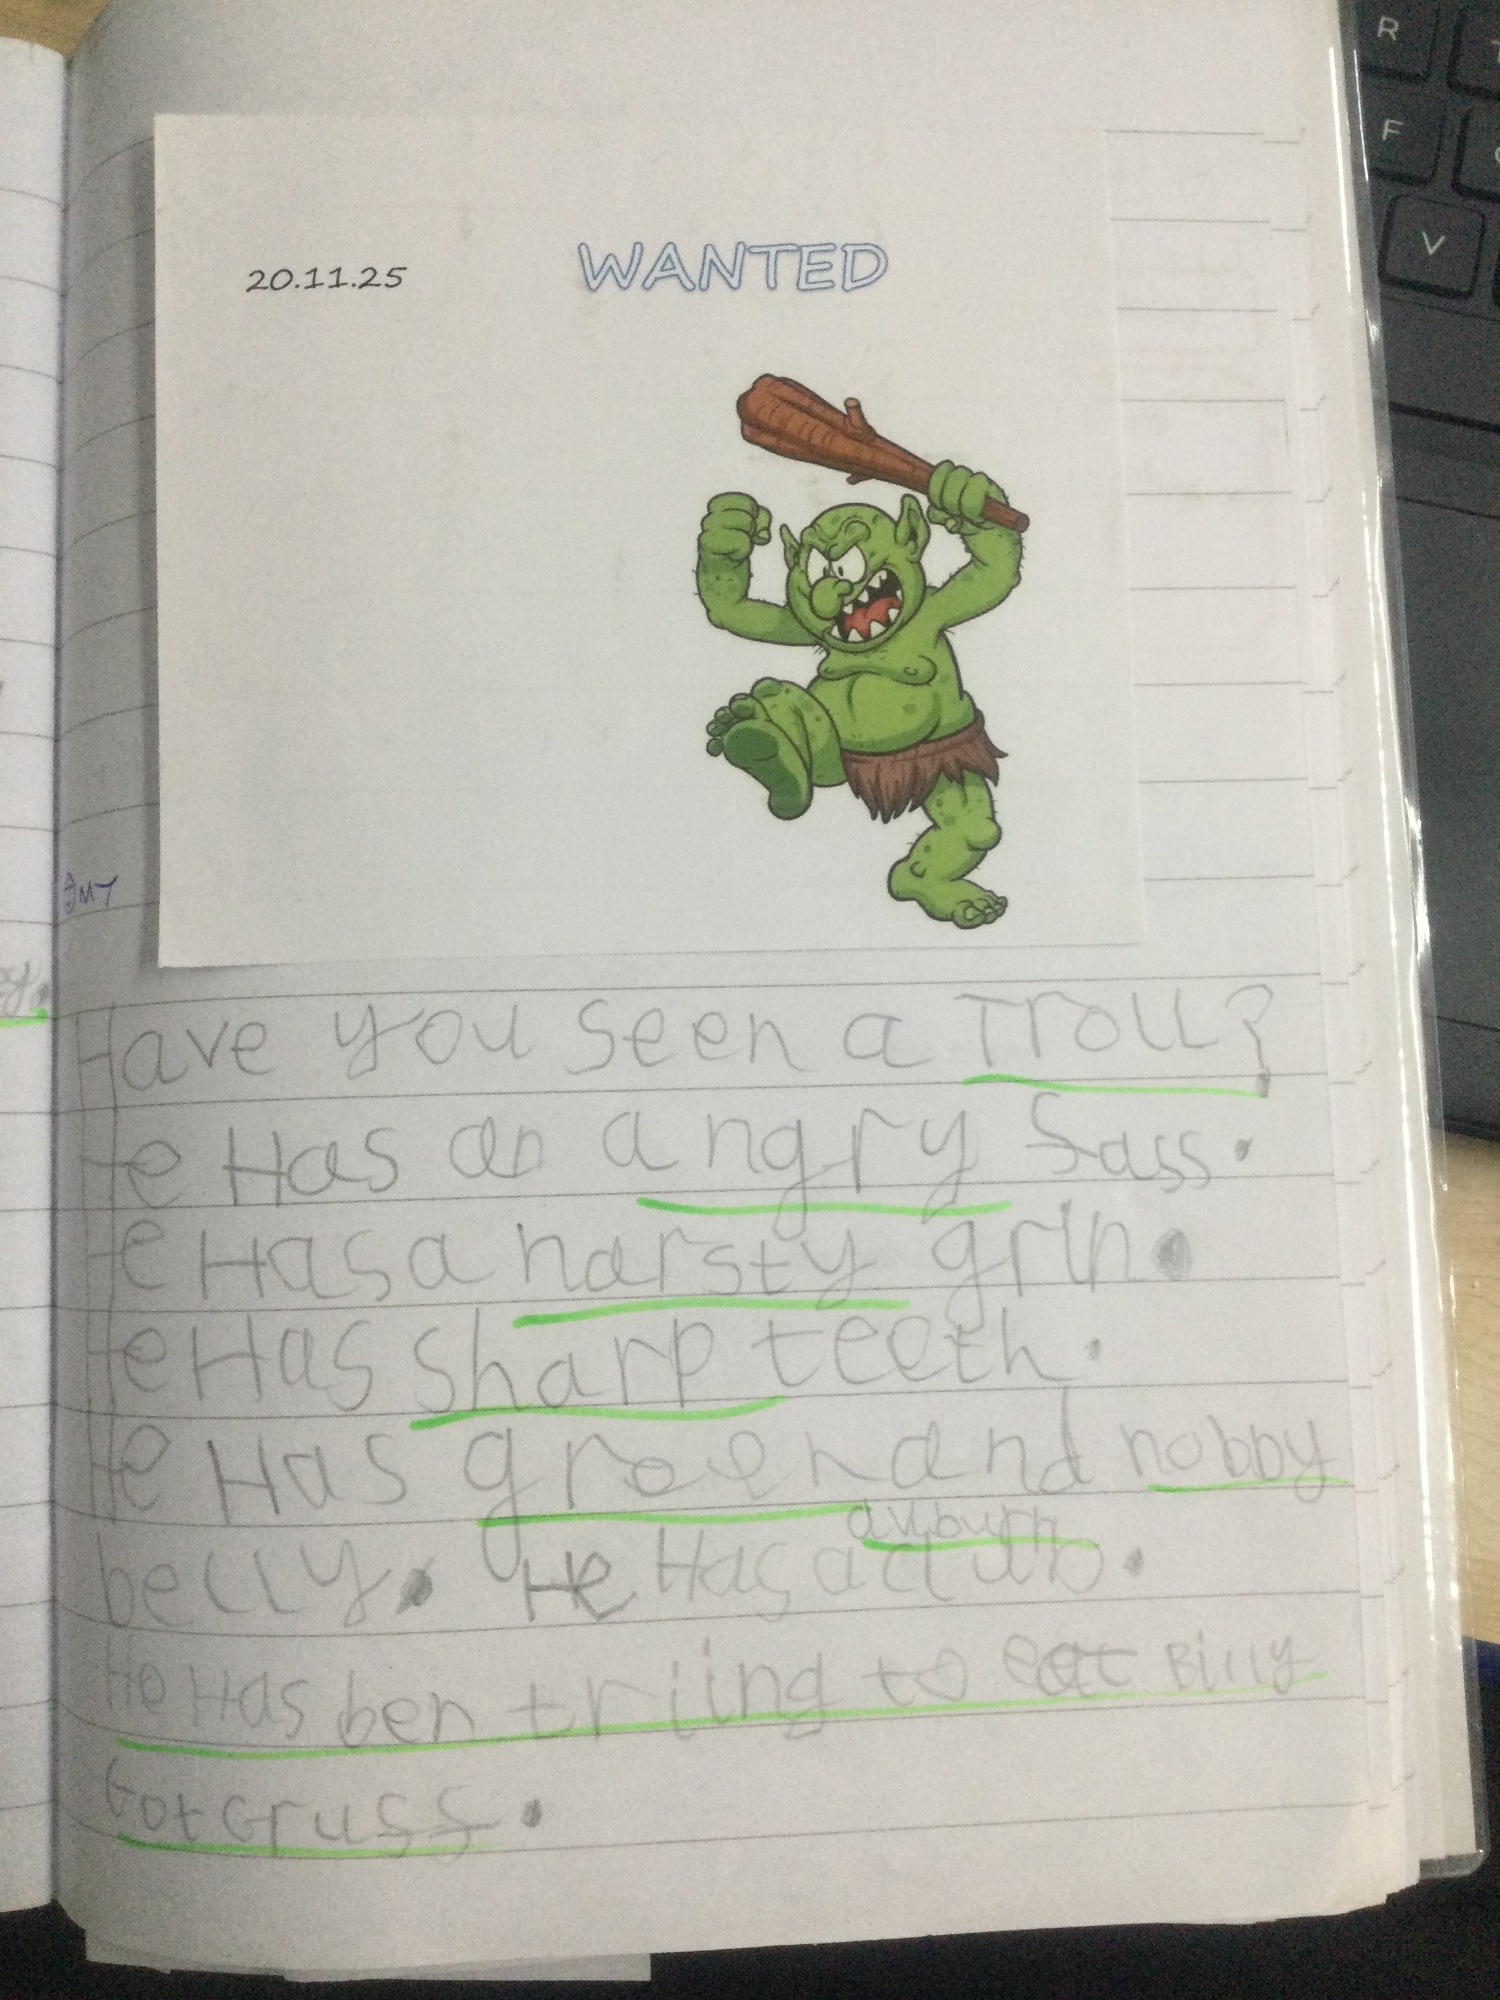 20.11.25 WANTED
JMT
Have you seen a Troll?
He Has an angry Sass.
He Has a narsty grin.
He Has sharp teeth.
He Has green and nobby
auburn
belly. He Has a club.
He Has ben triing to eat Billy
Got Gruss.
R
F
V